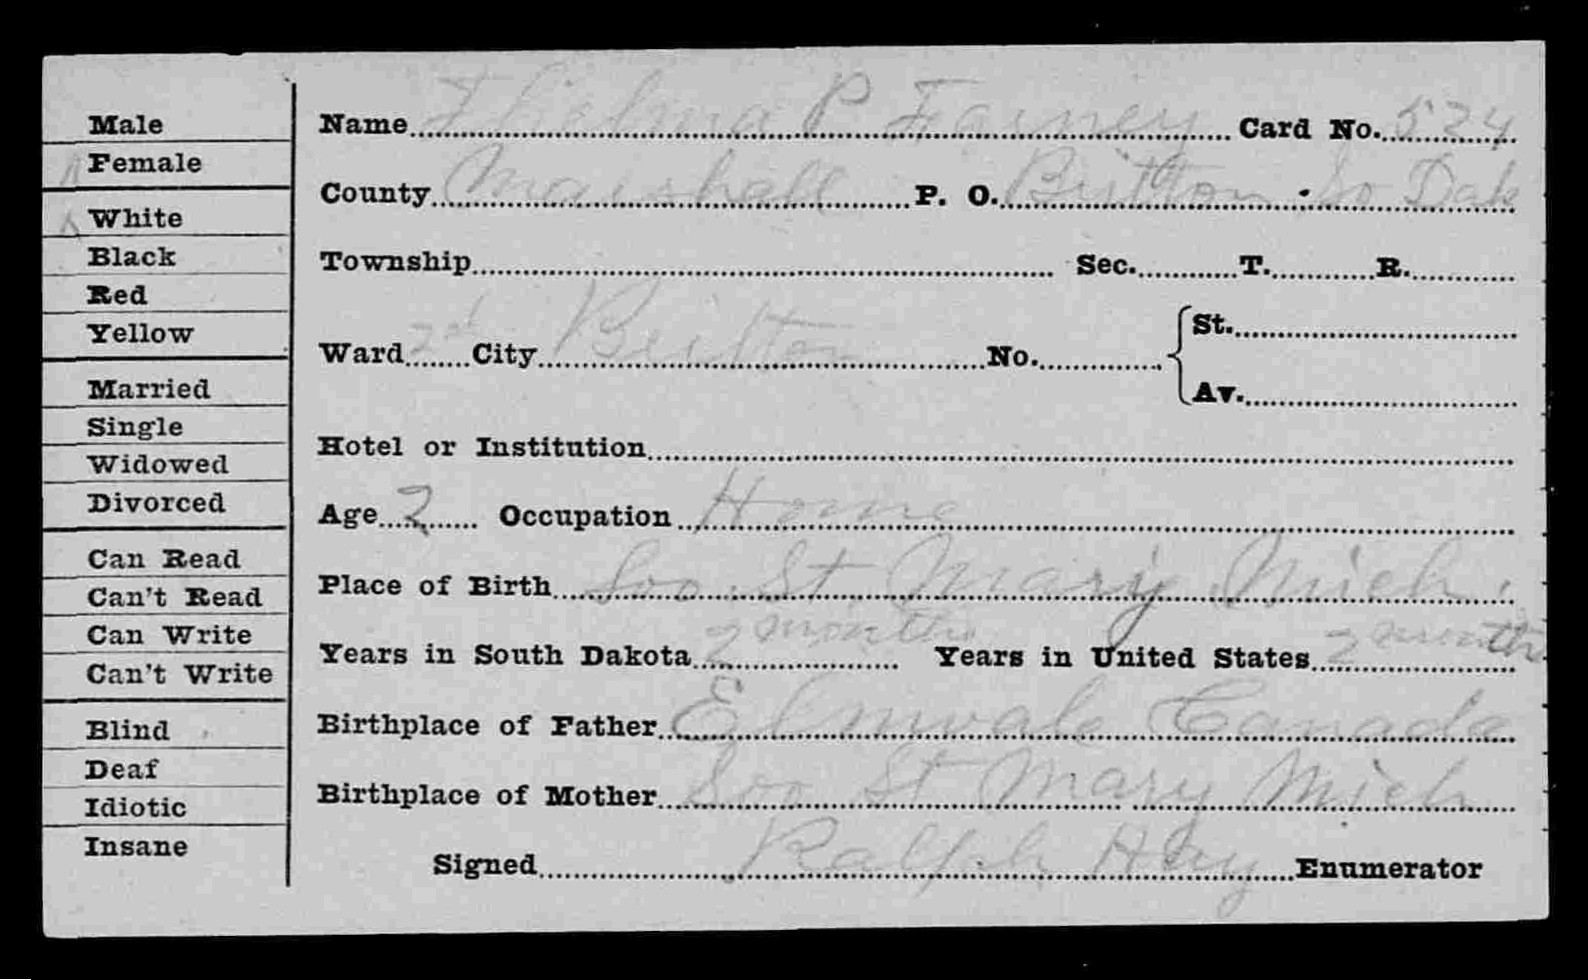 Male
Female
White
Black
Red
Yellow
Married
Single
Widowed
Divorced
Can Read
Can't Read
Can Write
Can't Write
Blind
Deaf
Idiotic
Insane
Name Thelma P Farney Card No. 524
County Marshall P. O. Britton So Dak
Township Sec. T. R.
Ward 2d City Britton No. St.
Av.
Hotel or Institution
Age 2 Occupation Home
Place of Birth Soo St Mary Mich.
Years in South Dakota 2 months Years in United States 2 months
Birthplace of Father Elmvale Canada
Birthplace of Mother Soo St Mary Mich
Signed Ralph Hay Enumerator